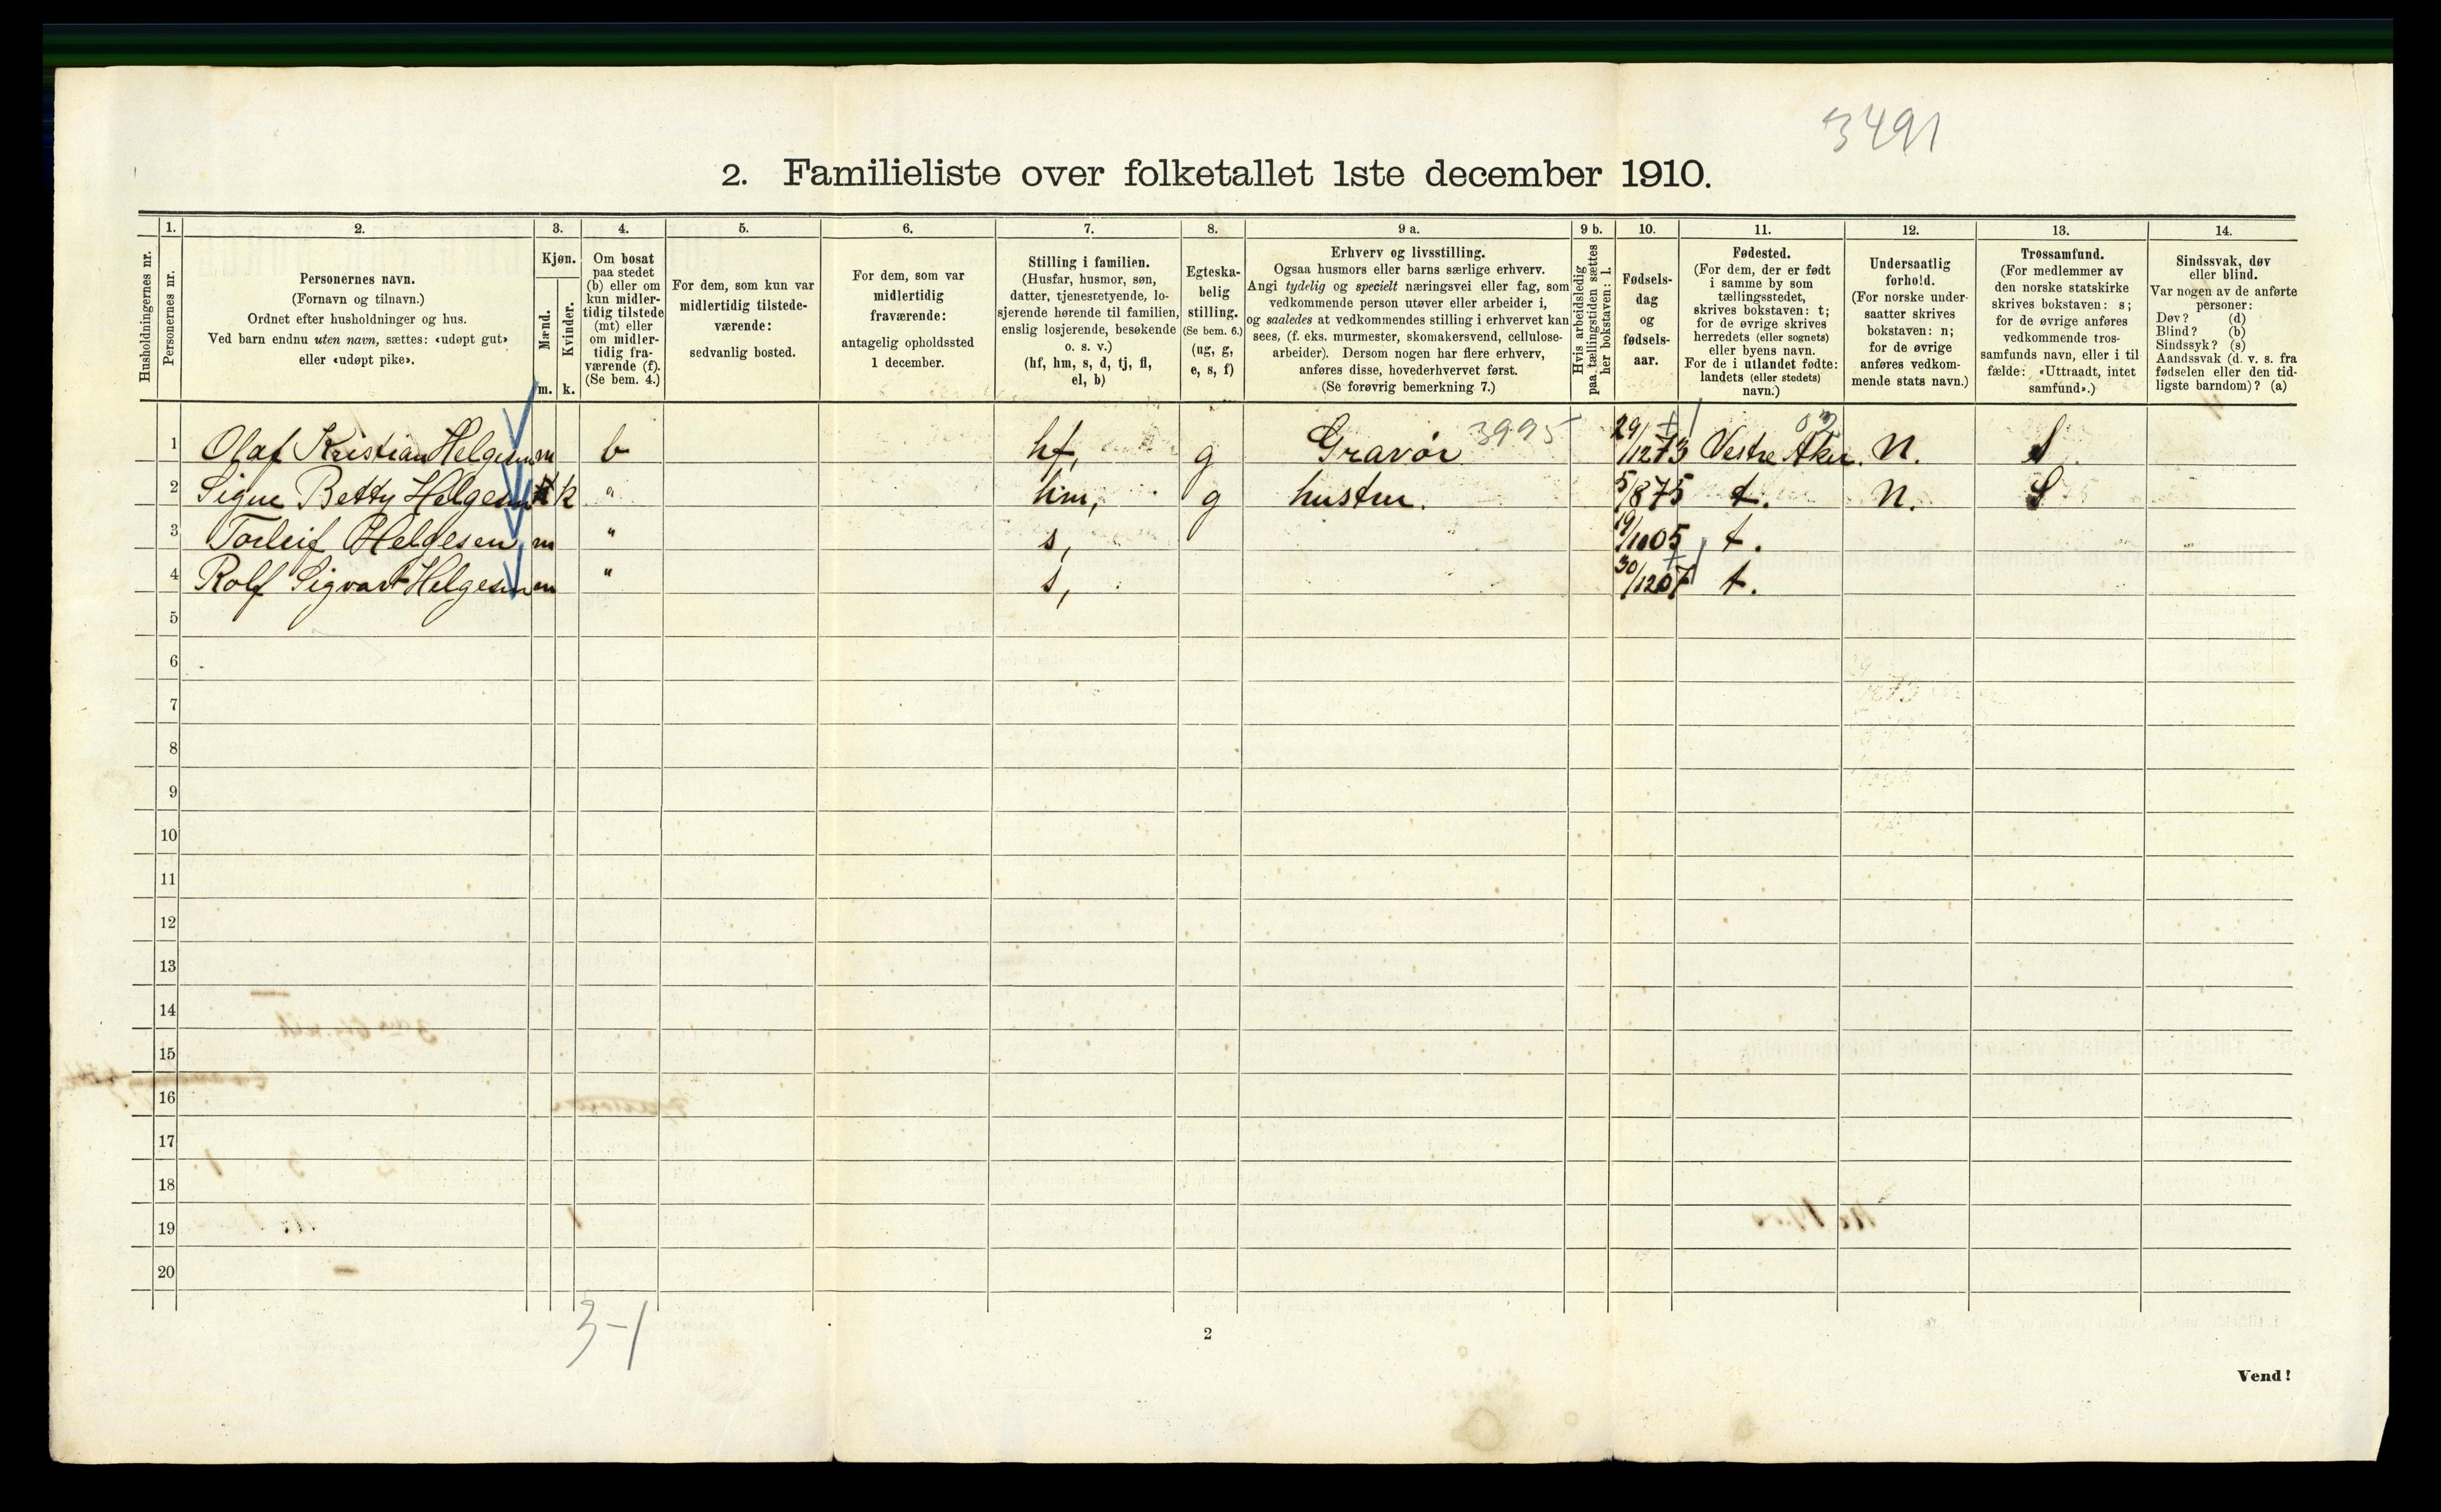 3491
2. Familieliste over folketallet 1ste december 1910.
Husholdningernes nr.
1.
Personernes nr.
2.
Personernes navn.
(Fornavn og tilnavn.)
Ordnet efter husholdninger og hus.
Ved barn endnu uten navn, sættes: «udøpt gut»
eller «udøpt pike».
3.
Kjøn.
Mænd.
Kvinder.
m. k.
4.
Om bosat
paa stedet
(b) eller om
kun midler-
tidig tilstede
(mt) eller
om midler-
tidig fra-
værende (f).
(Se bem. 4.)
5.
For dem, som kun var
midlertidig tilstede-
værende:
sedvanlig bosted.
6.
For dem, som var
midlertidig
fraværende:
antagelig opholdssted
1 december.
7.
Stilling i familien.
(Husfar, husmor, søn,
datter, tjenestetyende, lo-
sjerende hørende til familien,
enslig losjerende, besøkende
o. s. v.)
(hf, hm, s, d, tj, fl,
el, b)
8.
Egteska-
belig
stilling.
(Se bem. 6.)
(ug, g,
e, s, f)
9 a.
Erhverv og livsstilling.
Ogsaa husmors eller barns særlige erhverv.
Angi tydelig og specielt næringsvei eller fag, som
vedkommende person utøver eller arbeider i,
og saaledes at vedkommendes stilling i erhvervet kan
sees, (f. eks. murmester, skomakersvend, cellulose-
arbeider). Dersom nogen har flere erhverv,
anføres disse, hovederhvervet først.
(Se forøvrig bemerkning 7.)
9 b.
Hvis arbeidsledig
paa tællingstiden sættes
her bokstaven: l.
10.
Fødsels-
dag
og
fødsels-
aar.
11.
Fødested.
(For dem, der er født
i samme by som
tællingsstedet,
skrives bokstaven: t;
for de øvrige skrives
herredets (eller sognets)
eller byens navn.
For de i utlandet fødte:
landets (eller stedets)
navn.)
12.
Undersaatlig
forhold.
(For norske under-
saatter skrives
bokstaven: n;
for de øvrige
anføres vedkom-
mende stats navn.)
13.
Trossamfund.
(For medlemmer av
den norske statskirke
skrives bokstaven: s;
for de øvrige anføres
vedkommende tros-
samfunds navn, eller i til-
fælde: «Uttraadt, intet
samfund».)
14.
Sindssvak, døv
eller blind.
Var nogen av de anførte
personer:
Døv? (d)
Blind? (b)
Sindssyk? (s)
Aandssvak (d. v. s. fra
fødselen eller den tid-
ligste barndom)? (a)
1 Olaf Kristian Helgesen m b hf, g Gravør 3995 29/12 73 Vestre Aker. 02 N. S
2 Signe Betty Helgesen k " hm, g hustru. 5/8 75 t. N. S
3 Torleif Helgesen m " s, 19/10 05 t.
4 Rolf Sigvart Helgesen m " s, 30/12 07 t.
5
6
7
8
9
10
11
12
13
14
15
16
17
18
19
20
3-1
2
Vend!